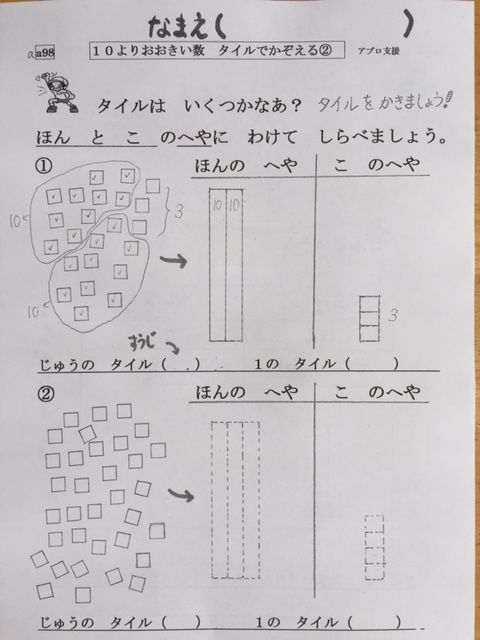 なまえ(　　　　)
a a98 １０よりおおきい数　タイルでかぞえる② アプロ支援
タイルは　いくつかなあ？ タイルをかきましょう！
ほん　と　こ　のへやに　わけて　しらべましょう。
① ほんの　へや こ　のへや
10 10 10 3
10 3
すうじ
じゅうの　タイル（　　） １の　タイル（　　）
② ほんの　へや こ　のへや
じゅうの　タイル（　　） １の　タイル（　　）